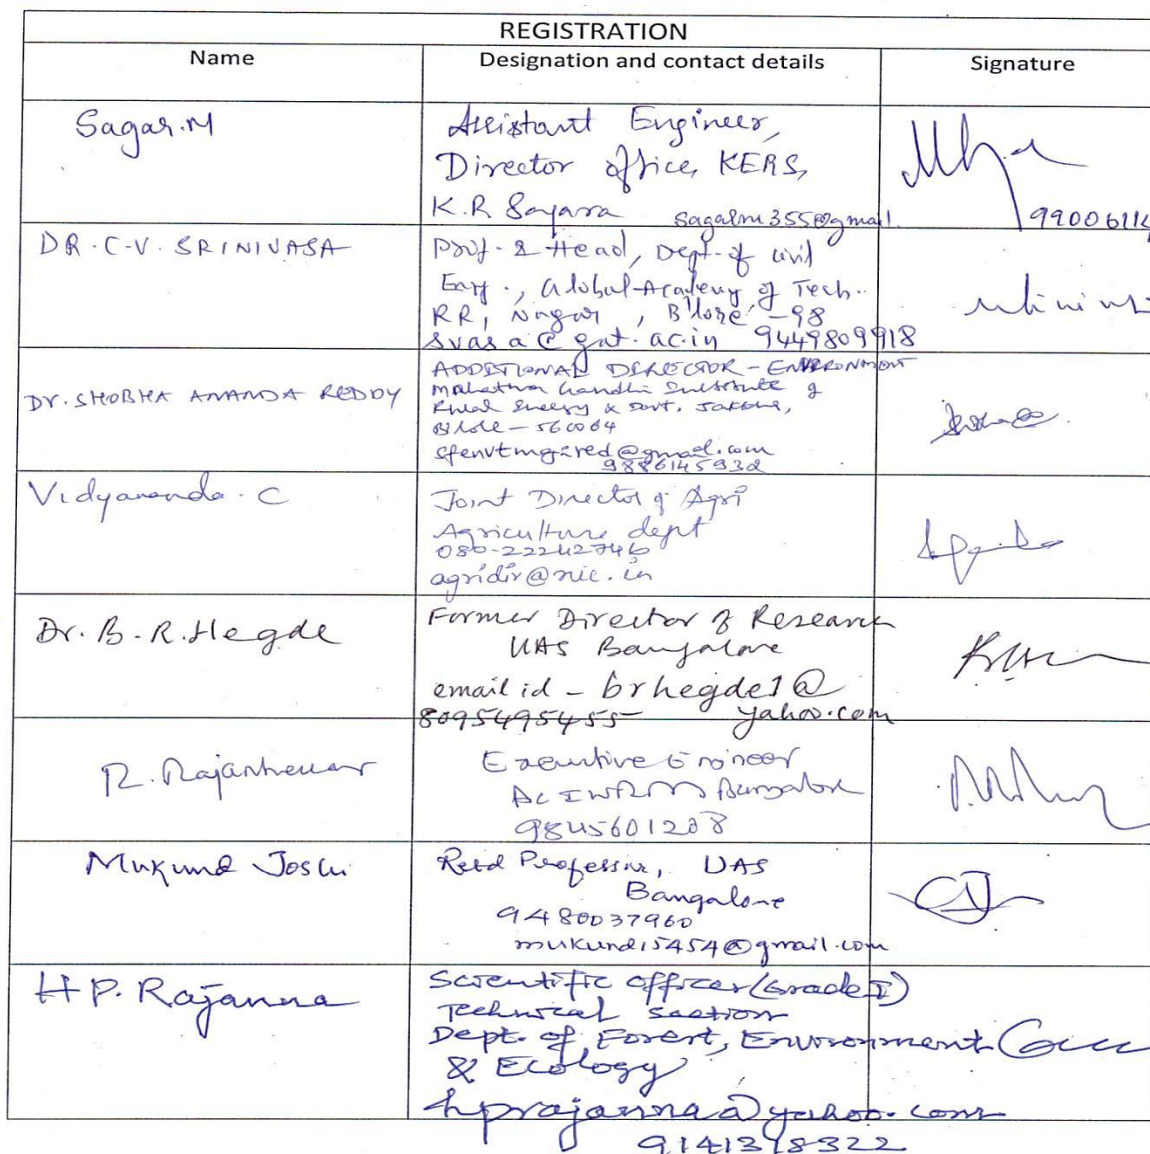 REGISTRATION
Name Designation and contact details Signature
Sagar.M Assistant Engineer,
Director office, KERS,
K.R Sagara sagarm355@gmail. 99006114
DR. C.V. SRINIVASA Prof. & Head, Dept. of civil
Engg., Global Academy of Tech.
RR, Nagar, B'lore -98
svasa@gat.ac.in 9449809918
DR. SHOBHA ANANDA REDDY ADDITIONAL DIRECTOR - ENVIRONMENT
Mahatma Gandhi Institute of
Rural Energy & Devt. Jakkur,
B'lore - 560064
9886145932
Vidyananda. C Joint Director of Agri
Agriculture dept
080-22242746
agridir@nic.in
Dr. B. R. Hegde Former Director of Research
UAS Bangalore
email id - brhegde1@
8095495455 yahoo.com
R. Executive Engineer
Bangalore
9845601208
Mukund Joshi Retd Professor, UAS
Bangalore
9480037960
mukund15454@gmail.com
H P. Rajanna Scientific officer (Grade I)
Technical section
Dept. of Forest, Environment
& Ecology
hprajanna@yahoo.com
9141398322